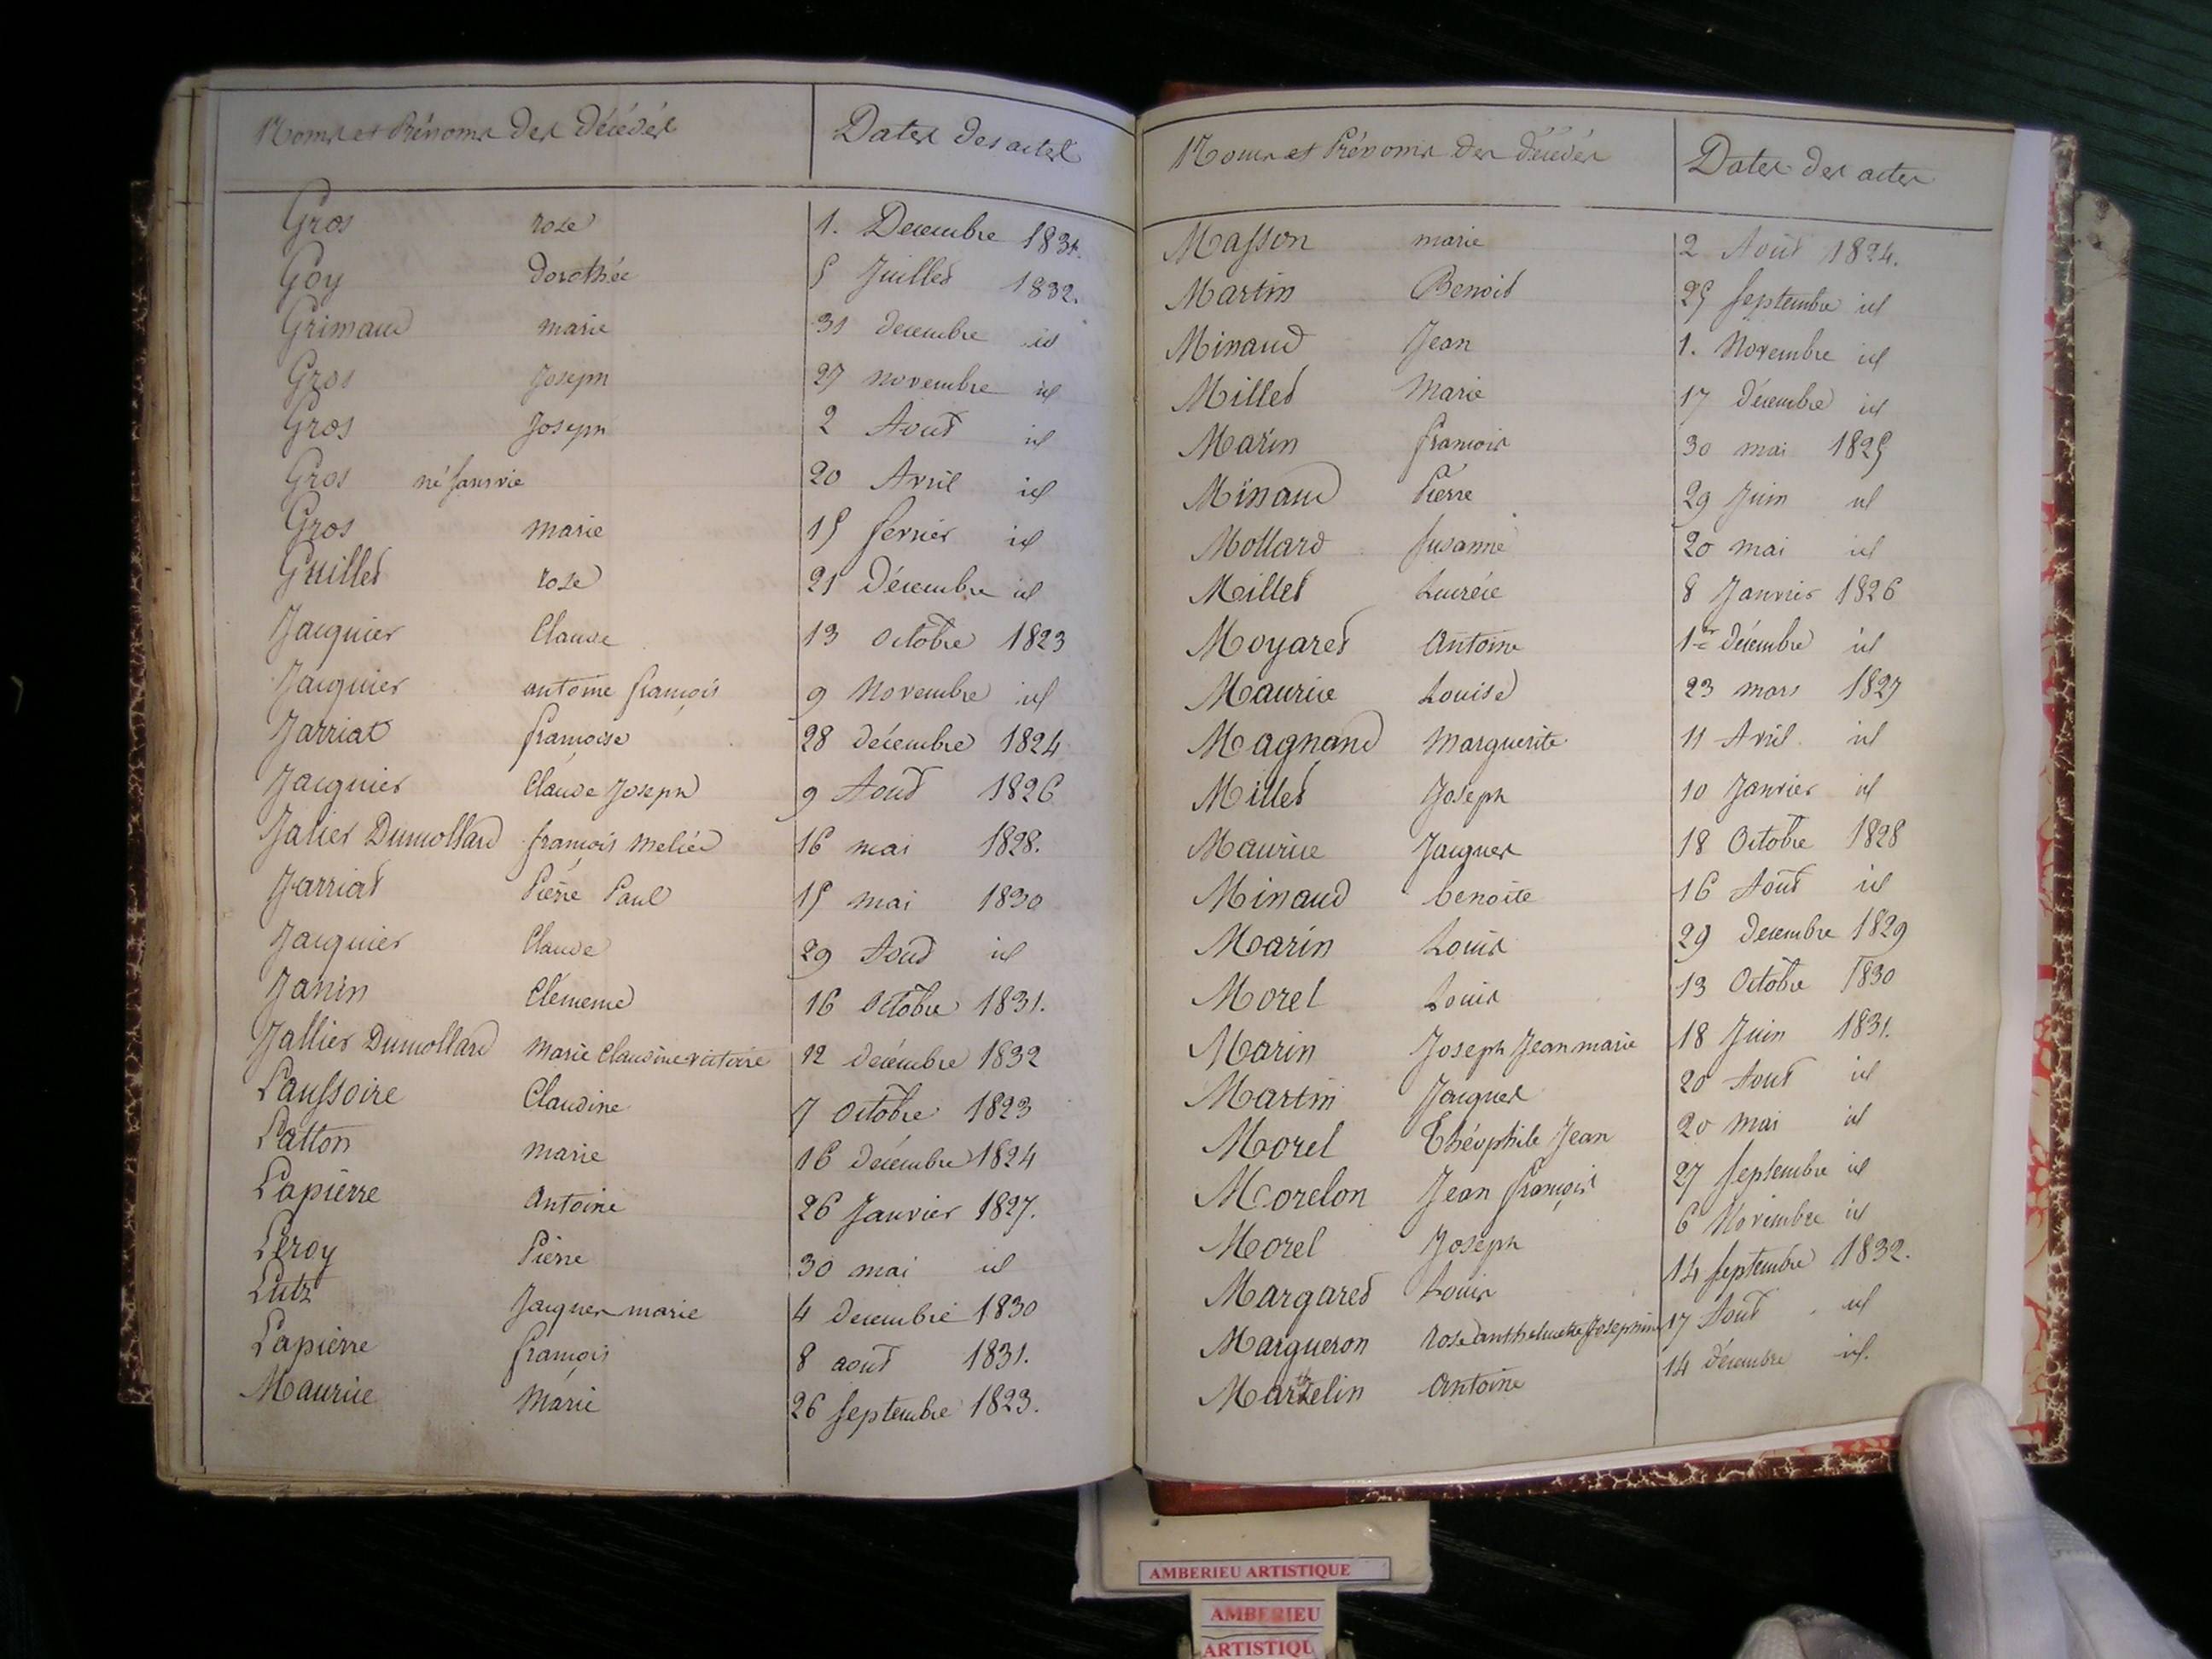 Noms et Prénoms des décédés Dates des actes
Gros rose 1. Decembre 1831.
Goy dorothée 5 Juillet 1832.
Grimaud marie 31 decembre id
Gros Joseph 27 novembre id
Gros Joseph 2 Aout id
Gros né sans vie 20 Avril id
Gros marie 15 fevrier id
Guillet rose 21 Décembre id
Jacquier Claude 13 octobre 1823
Jacquier antoine françois 9 Novembre id
Jarriat françoise 28 décembre 1824
Jacquier Claude Joseph 9 Aout 1826
Jalier Dumollard françois 16 mai 1828.
Jarriat Pierre Paul 15 mai 1830
Jacquier Claude 29 Aout id
Janin Clémence 16 Octobre 1831.
Jallier Dumollard Marie Claudine victoire 12 decembre 1832
Laussoire Claudine 7 octobre 1823
Latton marie 16 decembre 1824
Lapierre Antoine 26 Janvier 1827.
Leroy Pierre 30 mai id
Lutz Jacques marie 4 decembre 1830
Lapierre françois 8 aout 1831.
Maurice Marie 26 septembre 1823.
Noms et Prénoms des décédés Dates des actes
Masson marie 2 Aout 1824.
Martin Benoit 25 septembre id
Minaud Jean 1. Novembre id
Millet Marie 17 décembre id
Marin françois 30 mai 1825
Minaud Pierre 29 Juin id
Mollard Susanne 20 mai id
Millet Lucrèce 8 Janvier 1826
Moyaret Antoine 1er décembre id
Maurice Louise 23 mars 1827
Magnand Marguerite 11 Avril id
Millet Joseph 10 Janvier id
Maurice Jacques 18 Octobre 1828
Minaud benoite 16 Aout id
Marin Louis 29 decembre 1829
Morel Louis 13 Octobre 1830
Marin Joseph Jean marie 18 Juin 1831.
Martin Jacques 20 Aout id
Morel Théophile Jean 20 mai id
Morelon Jean françois 27 septembre id
Morel Joseph 6 Novembre id
Margaret Louis 14 septembre 1832.
Margueron rose anthelmette Josephine 17 Aout id
Martelin Antoine 14 décembre id.
AMBERIEU ARTISTIQUE
AMBERIEU
ARTISTIQU